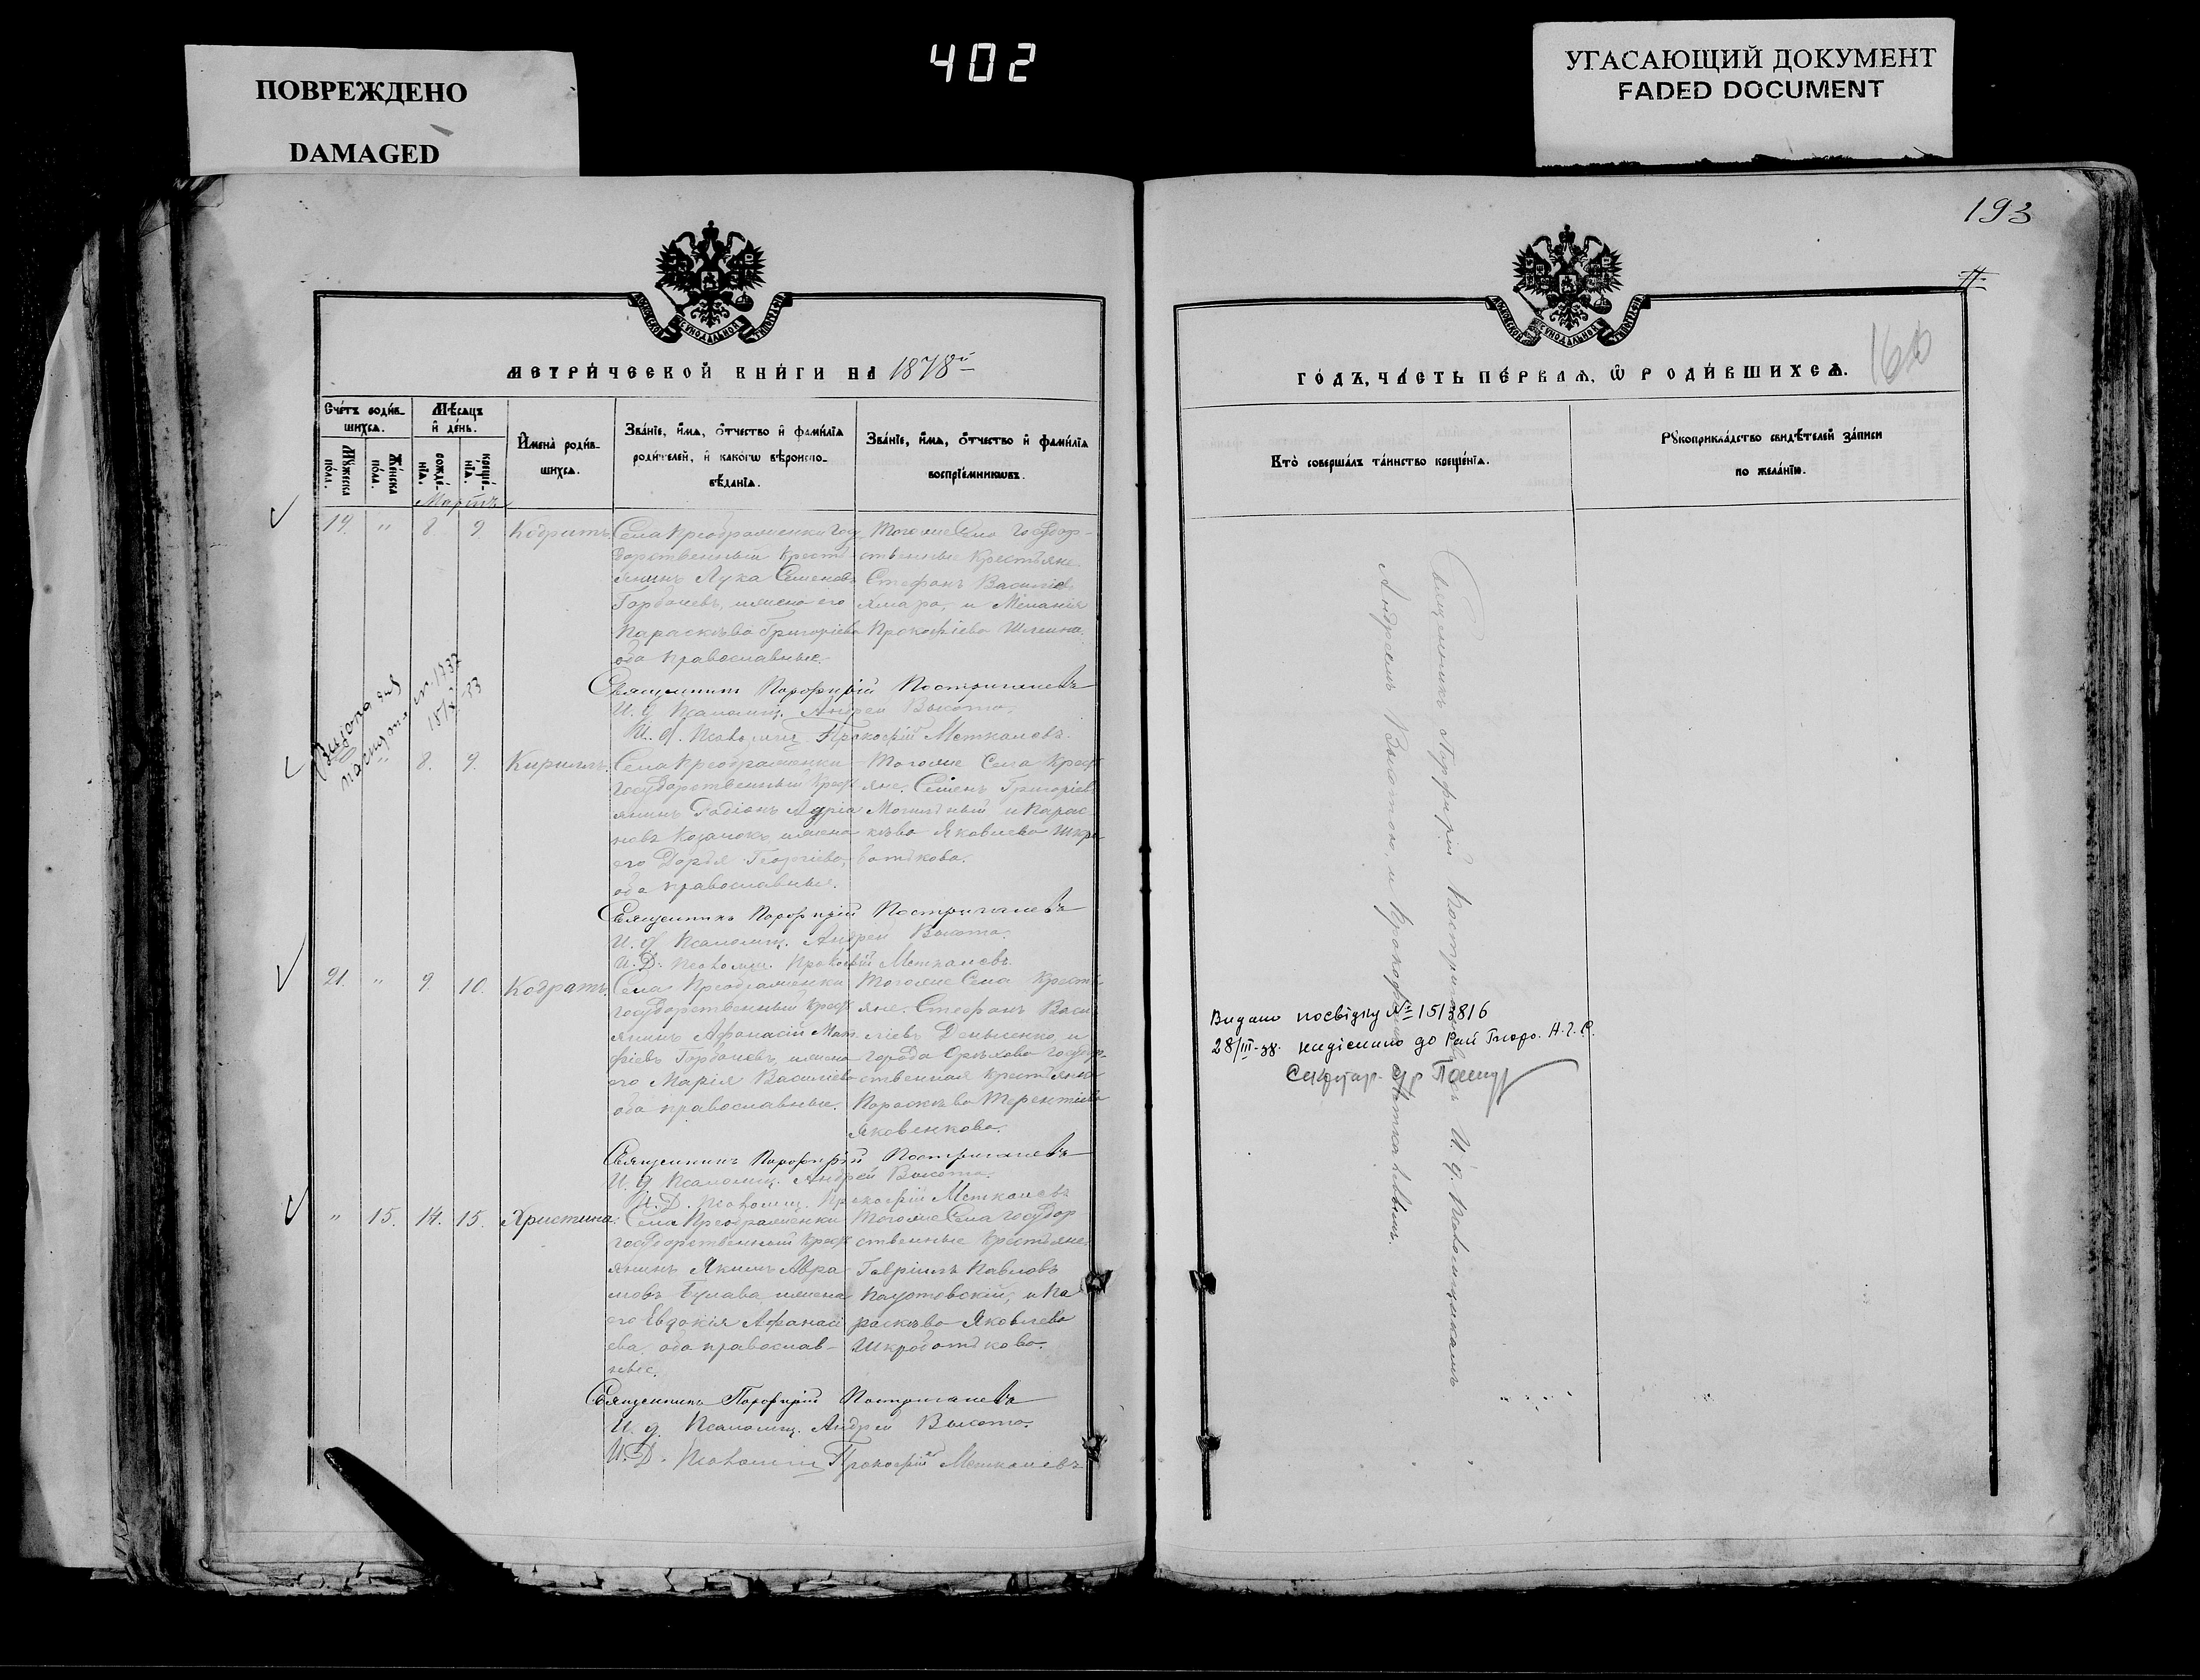 ПОВРЕЖДЕНО
DAMAGED
402
УГАСАЮЩИЙ ДОКУМЕНТ
FADED DOCUMENT
193
МЕТРИ́ЧЕСКОЙ КНИ́ГИ НА 1878й
Сче́тъ роди́в-
шихсѧ.
Мꙋ́жеска
по́ла.
Же́нска
по́ла.
Мѣ́сѧцъ
и҆ де́нь.
рожде́-
нїѧ.
креще́-
нїѧ.
И҆мена̀ роди́в-
шихсѧ.
Зва́нїе, и҆́мѧ, ѻ҆́тчество и҆ фами́лїѧ
роди́телей, и҆ како́гѡ вѣроиспо-
вѣ́данїѧ.
Зва́нїе, и҆́мѧ, ѻ҆́тчество и҆ фами́лїѧ
воспрїе́мникѡвъ.
Мартъ
19. " 8. 9. Кодратъ
Села Преображенки Госу
дарственный Кресть
янинъ Лука Семеновъ
Горбачевъ, и жена его
Параскѣва Григоріева
оба православные.
Тогоже Села Государ-
ственные Крестьяне
Стефанъ Василіев
Хмара, и Меланія
Прокофіева
Священникъ Порфирій Постригачевъ
И. д. Псаломщ. Андрей Высота.
И. д. Псаломщ. Прокофій Меткалевъ.
Видано для
паспорта
" 8. 9. Кириллъ.
Села Преображенки
Государственный Крест
янинъ Родіонъ Адріа
новъ Козачокъ, и жена
его Дарья Георгіева,
оба православные.
Тогоже Села Крест
яне. Семенъ Григоріев
и Парас
кѣва Яковлева Шкро
ботькова.
Священникъ Порфирій Постригачевъ
И. д. Псаломщ. Андрей Высота.
И. Д. Псаломщ. Прокофій Меткалевъ.
21. " 9. 10. Кодратъ.
Села Преображенки
Государственный Крест
янинъ Афанасій Мат
фіевъ Горбачевъ, и жена
его Марія Василіева
оба православные.
Тогоже Села Кресть
яне. Стефанъ Васи
ліевъ Денисенко, и
города Орѣхова Государ-
ственная крестьянка
Параскѣва Терентіева
Яковенкова.
Священникъ Порфирій Постригачевъ
И. д. Псаломщ. Андрей Высота.
И. Д. Псаломщ. Прокофій Меткалевъ
" 15. 14. 15. Христина.
Села Преображенки
государственный Крест
янинъ Якимъ Авра
мовъ Булава и жена
его Евдокія Афанасі
ева. оба православ-
ные.
Тогоже Села Государ
ственные Крестьяне
Гавріилъ Павловъ
Паустовскій, и Па
раскѣва Яковлева
Шкроботькова.
Священникъ Порфирій Постригачевъ
И. д. Псаломщ. Андрей Высота.
И. Д. Псаломщ Прокофій Меткалевъ
ГО́ДЪ, ЧА́СТЬ ПЕ́РВАѦ, Ѡ҆ РОДИ́ВШИХСѦ.
Кто̀ соверша́лъ та́инство креще́нїѧ.
Рꙋкоприкла́дство свидѣ́телей за́писи
по жела́нїю.
Священникъ Порфирій Постригачевъ съ И. д. Псаломщиками
Андреемъ Высотою, и Прокофіемъ Меткалевымъ.
Видано посвідку № 1513816
28/III- надіслано до
Секретар